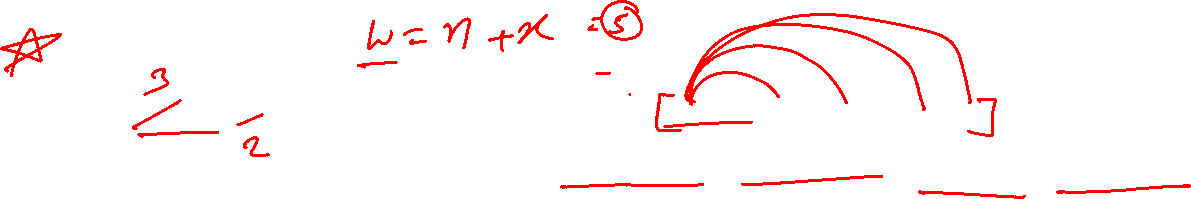 w = n + x = 5
3
2
[ ]